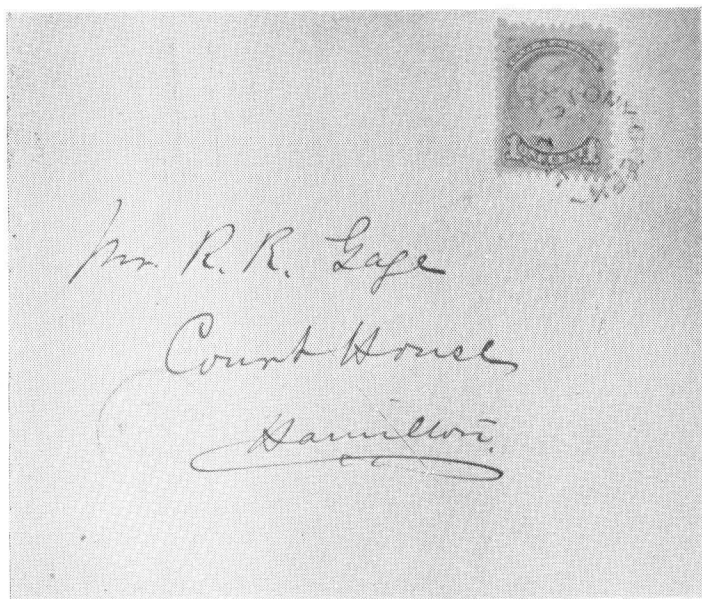 1 1
Mr. R. R. Gage
Court House
Hamilton.